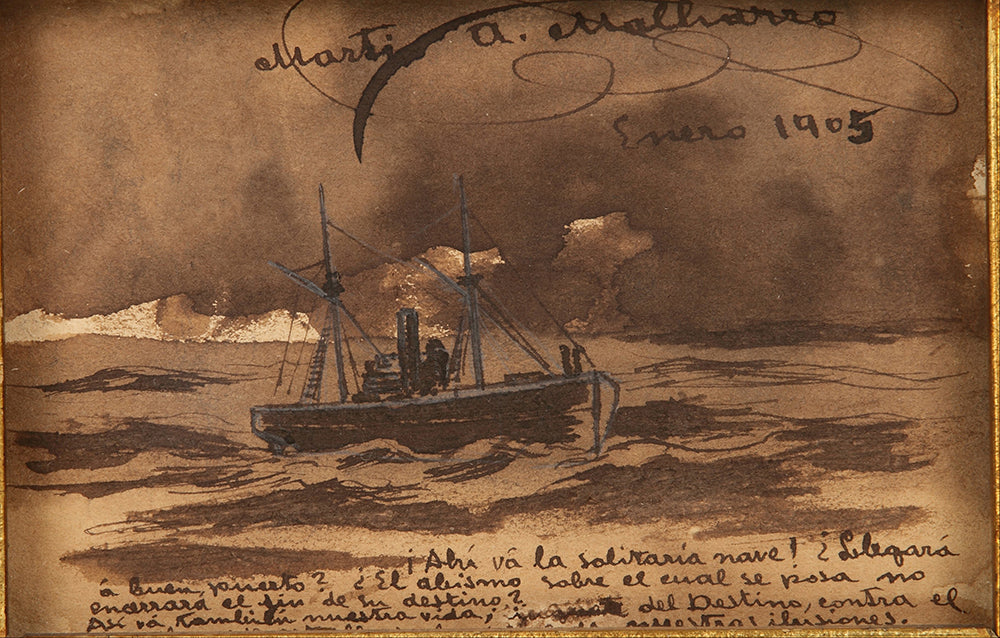 Martin A. Malharro
Enero 1905
¡Ahí vá la solitaria nave! ¿Llegará
á buen puerto? ¿El abismo sobre el cual se posa no
encerrará el fin de su destino?
Así vá también nuestra vida; del Destino, contra el
nuestras ilusiones.